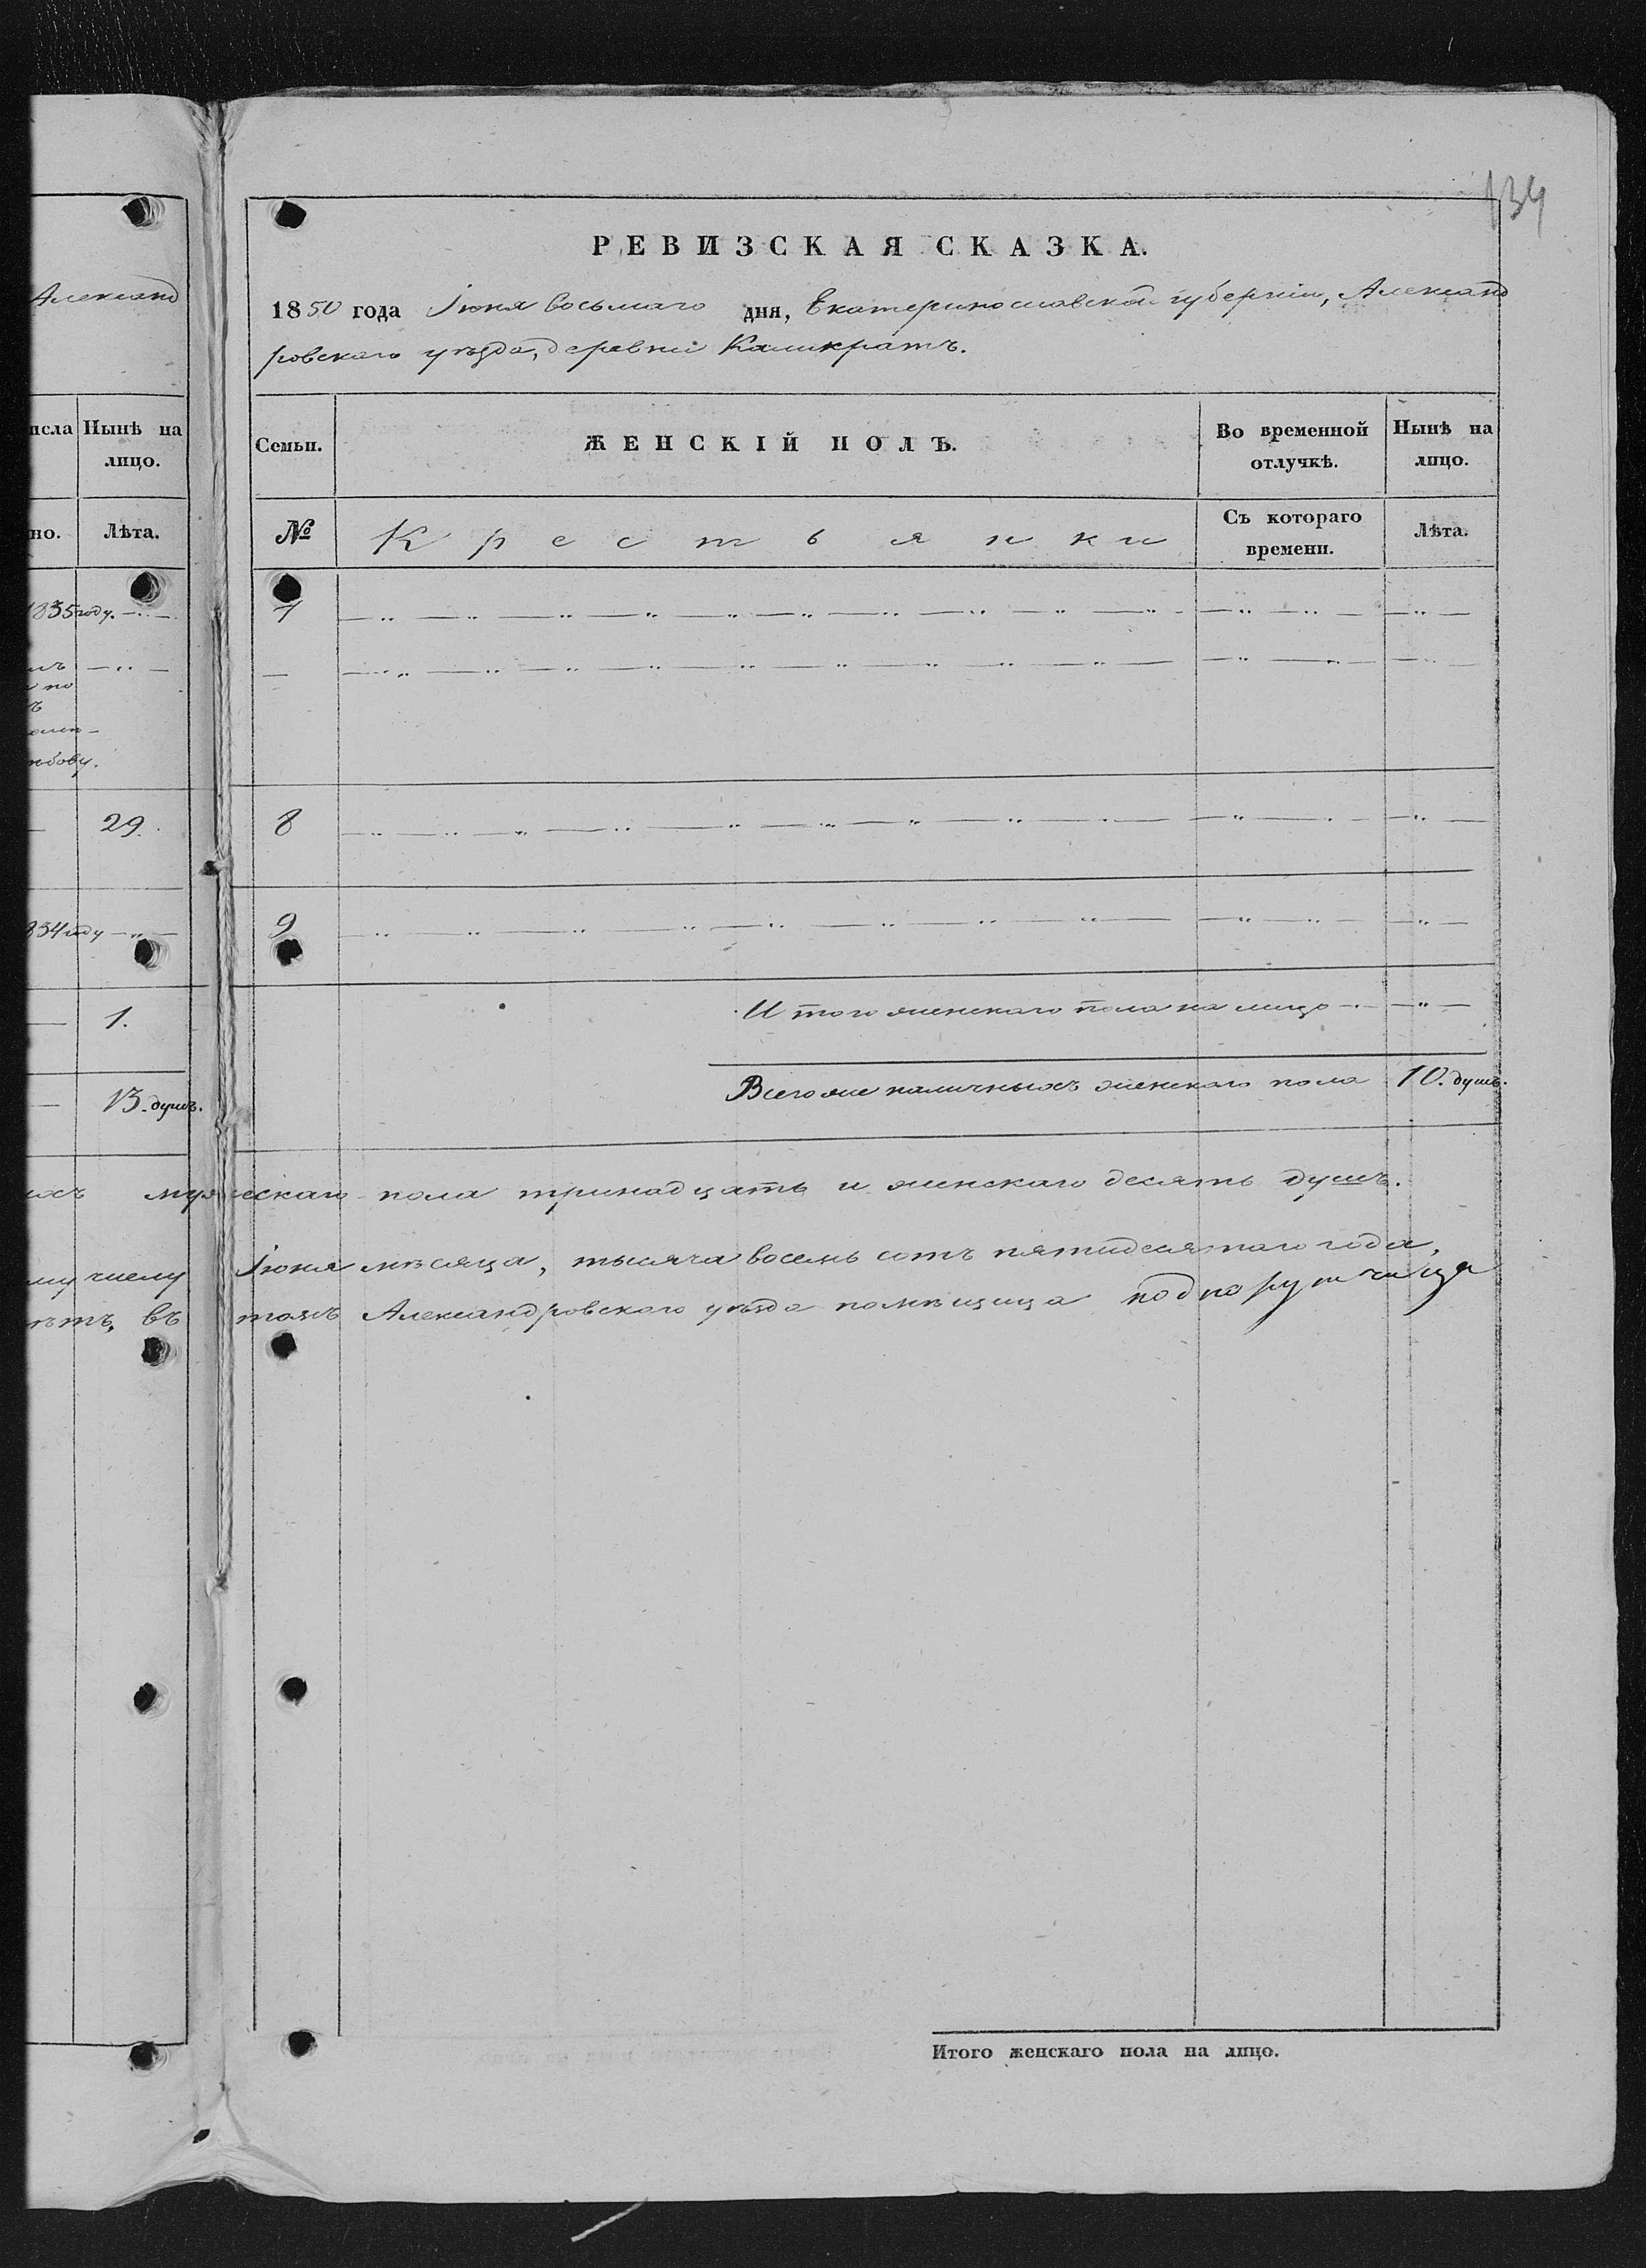 134
РЕВИЗСКАЯ СКАЗКА.
1850 года Іюня восьмаго дня, Екатеринославской губерніи, Александ
ровского уѣзда, деревни Каликратъ.
Александ
исла Нынѣ на лицо.
но. Лѣта.
1835 году. — „ —
мъ — „ —
по
ъ
нбову.
29.
834 году — „ —
1.
13. душъ.
Семьи. ЖЕНСКІЙ ПОЛЪ. Во временной отлучкѣ. Нынѣ на лицо.
№ Крестьянки Съ котораго времени. Лѣта.
7
8
9
Итого женскаго пола на лицо — „ —
Всего же наличныхъ женскаго пола 10. душъ.
ихъ мужескаго пола тринадцать и женскаго десять душъ.
му числу Іюня мѣсяца, тысяча восемь сотъ пятидесятаго года,
ѣтъ, въ томъ Александровскаго уѣзда помѣщица подпорутчица
Итого женскаго пола на лицо.